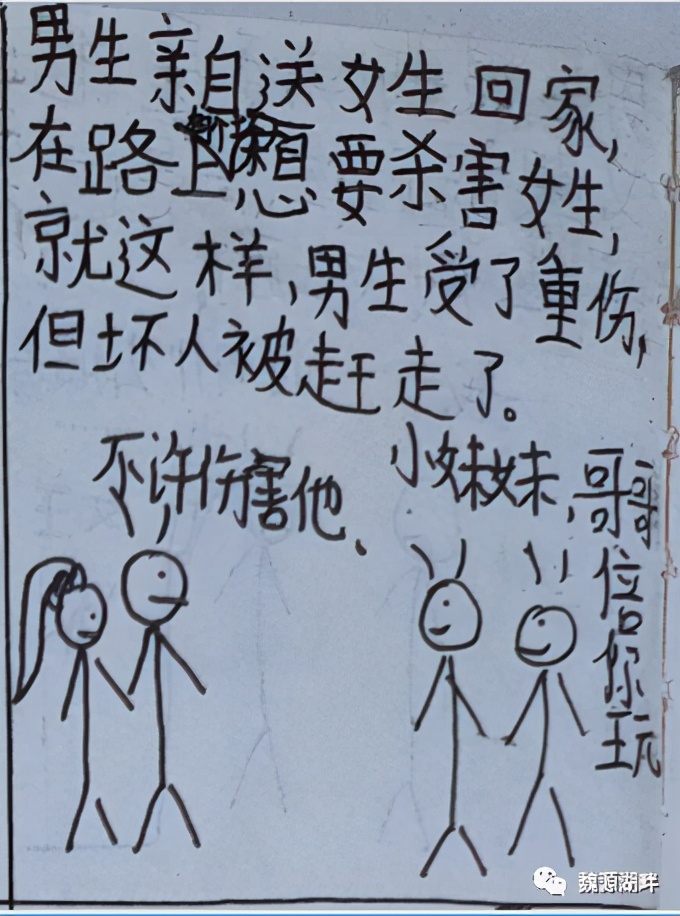 男生亲自送女生回家,
在路上想要杀害女生,
就这样,男生受了重伤,
但坏人被赶走了。
不许伤害他、
小妹妹,哥哥
位
你
玩
魏源湖畔